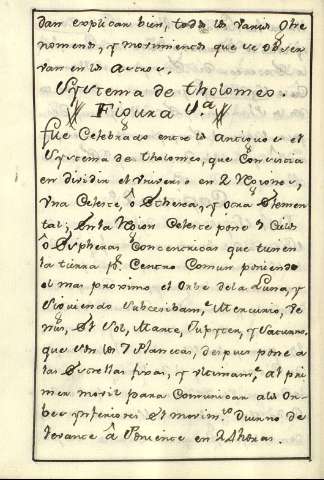 dan explicar bien, todos los varios Phe
nomenos, y movimientos que se obser
van en los Astros.
Systema de Tholomeo.
Figura 1.ª
Fue Celebrado entre los Antiguos el
Systema de Tholomeo, que Consistia
en dividir el Universo en 2 Regiones,
Una Celeste, ô Etherea, y otra Elemen
tal; En la Region Celeste pone 9 Cielos
ô Espheras Concentricas que tienen
la tierra por Centro Comun poniendo
el mas proximo el Orbe de la Luna, y
Siguiendo Subcesibam.te Mercurio, Ve
nus, El Sol, Marte, Jupyter, y Saturno,
que son los 7 Planetas, despues pone a
las Estrellas fixas, y ultimam.te al pri
mer movil para Comunicar a los Or
bes Ynferiores El movim.to Diurno de
Levante â Poniente en 24 horas.